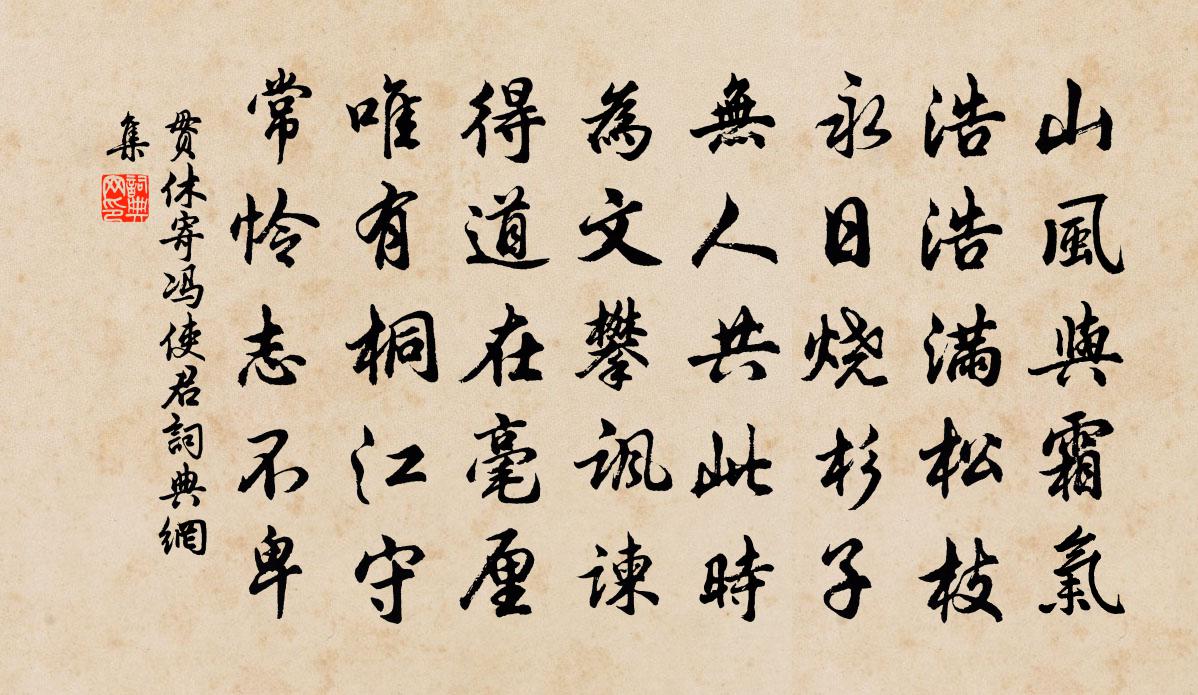 山風與霜氣
浩浩滿松枝
永日烧杉子
無人共此時
為文攀諷諫
得道在毫厘
唯有桐江守
常怜志不卑
贯休寄冯使君詞典網
集
詞典
网印